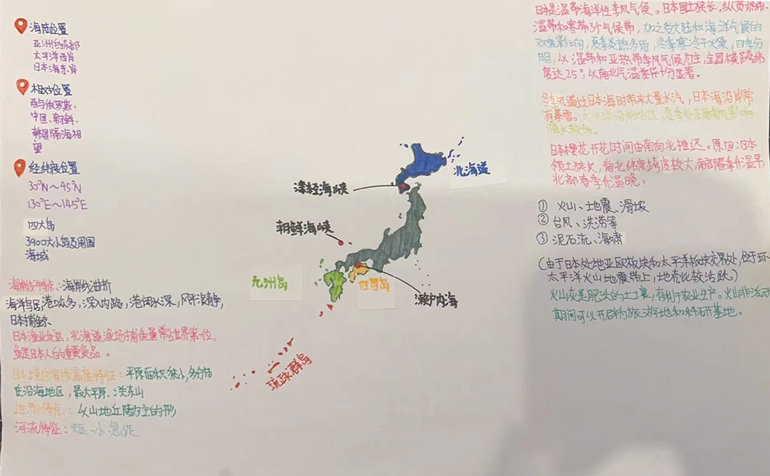 海陆位置
亚洲的东部
太平洋西岸
日本海东岸
相对位置
西与俄罗斯、
中国、朝鲜、
韩国隔海相
望
经纬度位置
30°N～45°N
130°E～145°E
四大岛
3900大小岛及周围
海域
海岸线特征：海岸线曲折
海洋与民，港湾多，深入内陆，港阔水深，风平浪静，
日本暖流、
日本渔业发达，北海道渔场捕鱼量带世界第一位，
鱼是日本人的重要食品。
平原面积狭小，多分布
在沿海地区，最大平原：关东山
地形特点：以山地丘陵为主的形
河流特征：短、小、急促
北海道
津轻海峡
朝鲜海峡
九州岛
四国岛
濑户内海
琉球群岛
日本是温带海洋性季风气候。日本国土狭长，纵贯
温带和寒带3个气候带，加之受大陆和海洋气候的
双重影响，夏季炎热多雨，冬季寒冷干燥，四季分
明，以温带和亚热带季风气候为主，全国横跨纬
度达25°，从南北气温差十分显著。
冬季风通过日本海时带来大量水汽，日本海沿岸常
有暴雪。太平洋
日本樱花开花时间由南向北推迟。原因：日本
领土狭长，南北纬度跨度较大，南部春季气温高
北部春季气温晚。
① 火山、地震、滑坡
② 台风、洪涝等
③ 泥石流、海啸
（由于日本处地亚欧板块和太平洋板块交界处，处于环
太平洋火山地震带上，地壳比较活跃）
火山灰是肥沃的土壤，有利于农业生产。火山非活动
期间可以开辟为旅游地和科研基地。